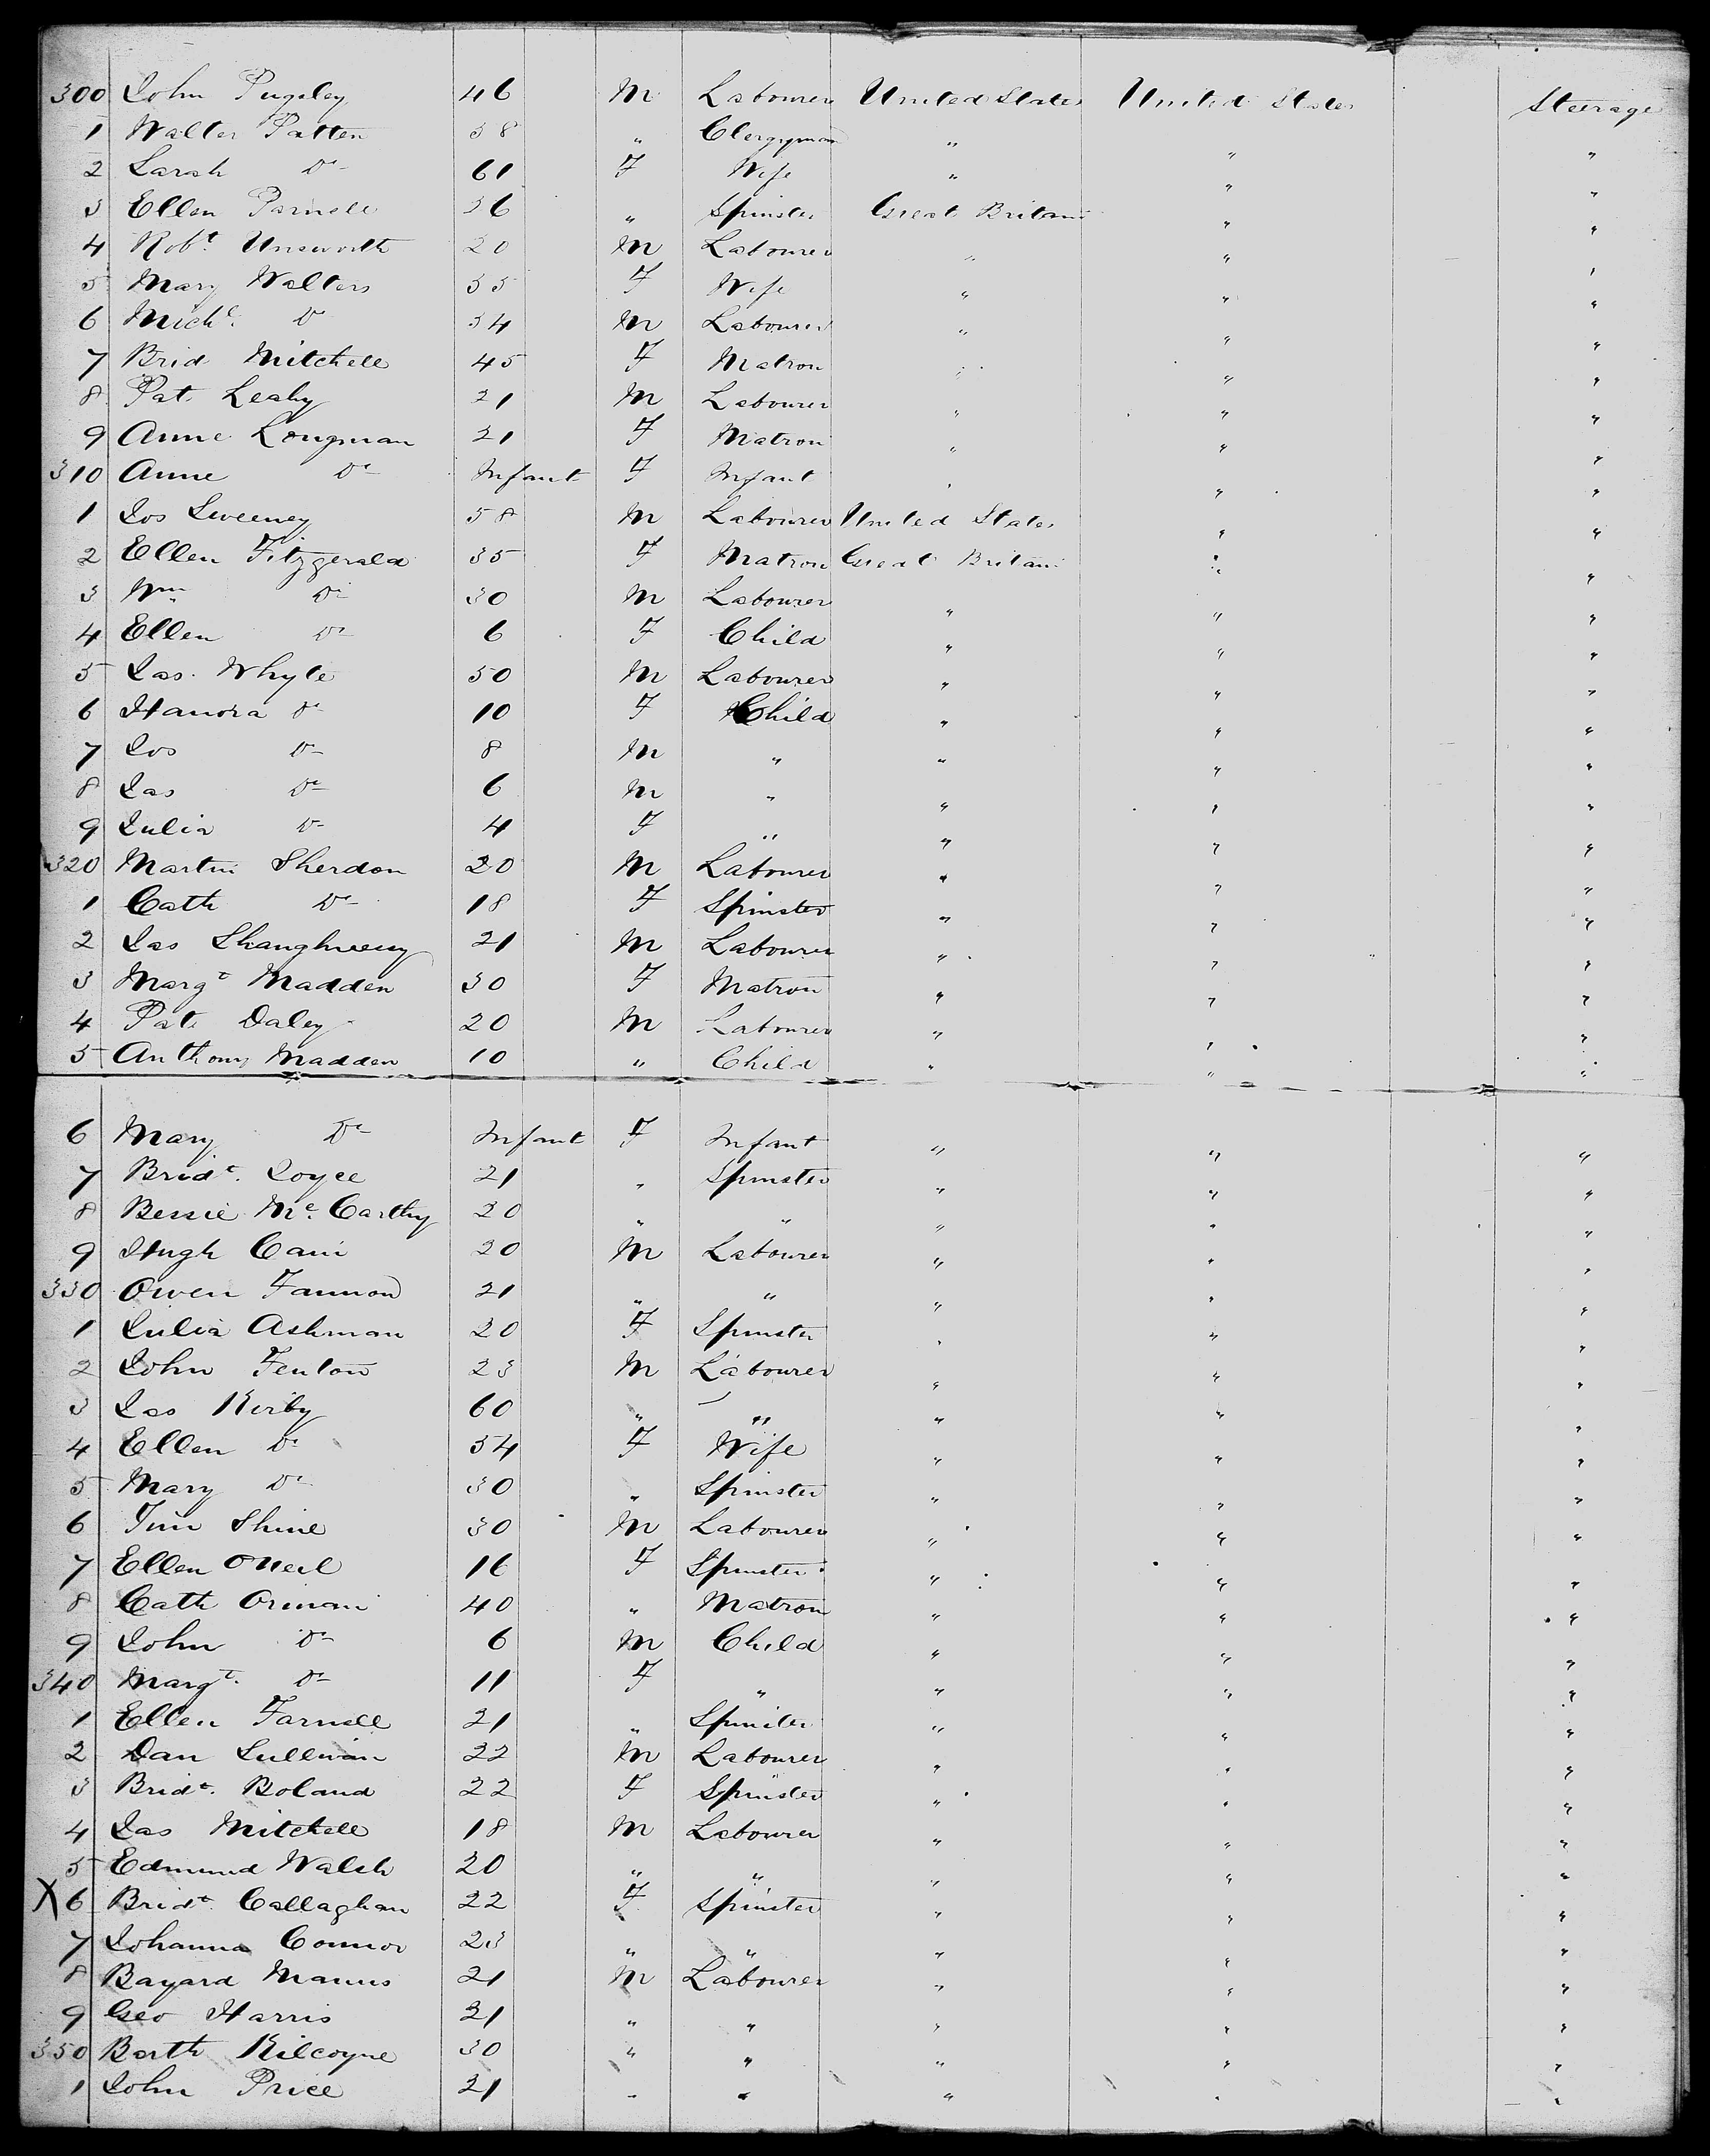 300 John Pugsley 46 M Labourer United States United States Steerage
1 Walter Patten 58 " Clergyman " " "
2 Sarah Do 61 F Wife " " "
3 Ellen Parnell 26 " Spinster Great Britain " "
4 Robt. Unsworth 20 M Labourer " " "
5 Mary Walters 35 F Wife " " "
6 Michl. Do 34 M Labourer " " "
7 Brid Mitchell 45 F Matron " " "
8 Pat Leahy 21 M Labourer " " "
9 Anne Longman 21 F Matron " " "
310 Anne Do Infant F Infant " " "
1 Jos Sweeney 58 M Labourer United States " "
2 Ellen Fitzgerald 35 F Matron Great Britain " "
3 Wm Do 30 M Labourer " " "
4 Ellen Do 6 F Child " " "
5 Jas. Whyte 50 M Labourer " " "
6 Hanora Do 10 F Child " " "
7 Jos Do 8 M " " " "
8 Jas Do 6 M " " " "
9 Julia Do 4 F " " " "
320 Martin Sherdon 20 M Labourer " " "
1 Cath Do 18 F Spinster " " "
2 Jas Shaughnessy 21 M Labourer " " "
3 Margt Madden 30 F Matron " " "
4 Pat Daley 20 M Labourer " " "
5 Anthony Madden 10 " Child " " "
6 Mary Do Infant F Infant " " "
7 Bridt. Joyce 21 " Spinster " " "
8 Bessie Mc. Carthy 20 " " " " "
9 Hugh Cain 20 M Labourer " " "
330 Owen Fannon 21 " " " " "
1 Julia Ashman 20 F Spinster " " "
2 John Fenton 23 M Labourer " " "
3 Jas Kirby 60 " " " " "
4 Ellen Do 54 F Wife " " "
5 Mary Do 30 " Spinster " " "
6 Tim Shine 30 M Labourer " " "
7 Ellen ONeil 16 F Spinster " " "
8 Cath 40 " Matron " " "
9 John Do 6 M Child " " "
340 Margt. Do 11 F " " " "
1 Ellen Farnell 21 " Spinster " " "
2 Dan Sullivan 22 M Labourer " " "
3 Bridt. Boland 22 F Spinster " " "
4 Jas Mitchell 18 M Labourer " " "
5 Edmund Walsh 20 " " " " "
X 6 Bridt. Callaghan 22 F Spinster " " "
7 Johanna Connor 23 " " " " "
8 Bayard Manus 21 M Labourer " " "
9 Geo Harris 21 " " " " "
350 Barth Kilcoyne 30 " " " " "
1 John Price 21 " " " " "